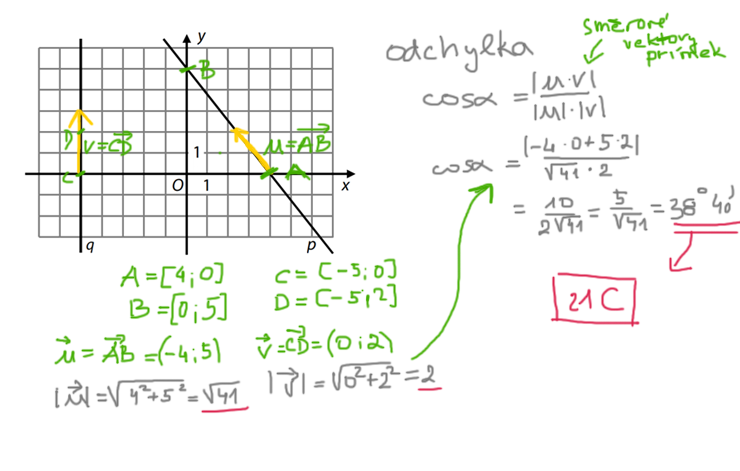 y
B
D
v=CB
1
u=AB
A
C
O 1
x
q
p
odchylka
směrové
vektory
přímek
cosα = |u·v| / |u|·|v|
cosα = |-4·0+5·2| / √41 · 2
= 10 / 2√41 = 5 / √41 = 38° 40'
21 C
A = [4;0]
C = [-5;0]
B = [0;5]
D = [-5;2]
u = AB = (-4;5)
v = CD = (0;2)
|u| = √4²+5² = √41
|v| = √0²+2² = 2